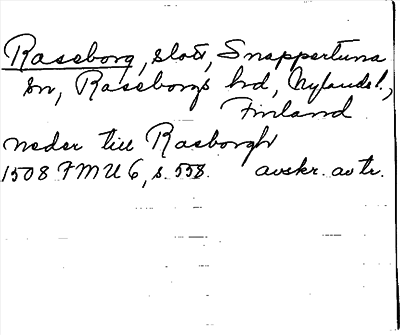 Raseborg, slott, Snappertuna
sn, Raseborgs hd, Nylands l.,
Finland
neder till Rasborgh
1508 FMU 6, s. 558. avskr. av tr.